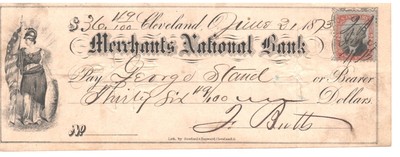 $36 49/100 Cleveland, June 21 1873
Merchants National Bank
Pay George or Bearer
Thirty Six 49/100 Dollars
$ J. Butts